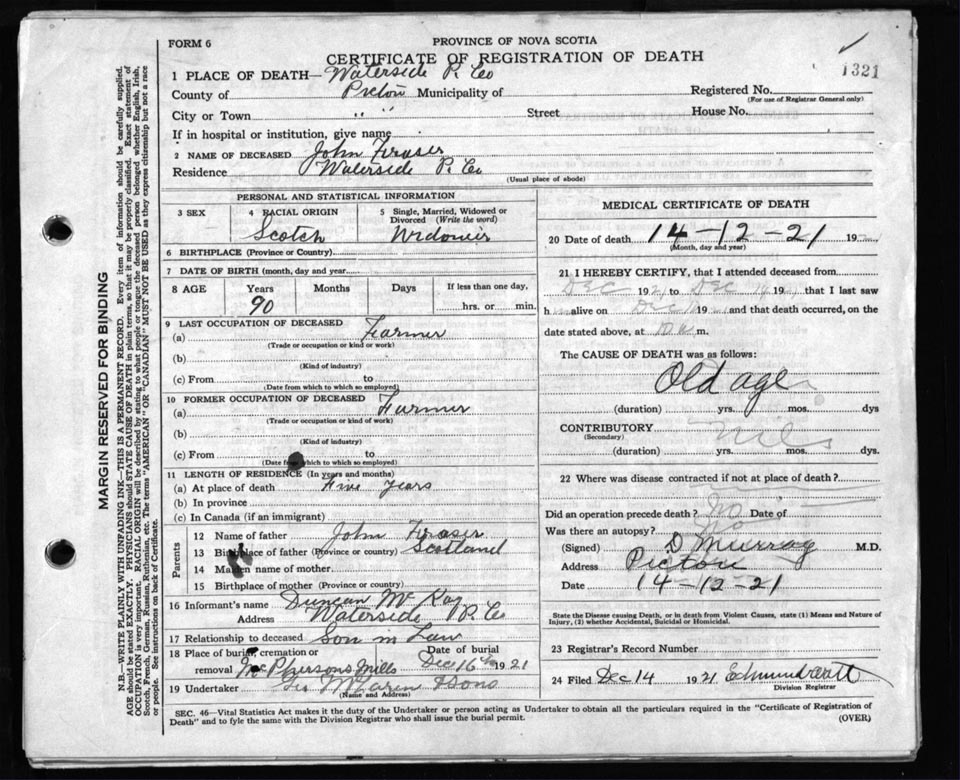 FORM 6
PROVINCE OF NOVA SCOTIA
CERTIFICATE OF REGISTRATION OF DEATH
1321
1 PLACE OF DEATH— Waterside P. Co
County of Pictou Municipality of
Registered No.
(For use of Registrar General only)
City or Town " " Street House No.
If in hospital or institution, give name
2 NAME OF DECEASED John Fraser
Residence Waterside P. Co
(Usual place of abode)
PERSONAL AND STATISTICAL INFORMATION
3 SEX
4 RACIAL ORIGIN
Scotch
5 Single, Married, Widowed or Divorced (Write the word)
Widower
6 BIRTHPLACE (Province or Country)
7 DATE OF BIRTH (month, day and year)
8 AGE Years Months Days If less than one day,
90 hrs. or min.
9 LAST OCCUPATION OF DECEASED
(a) Farmer
(Trade or occupation or kind or work)
(b)
(Kind of industry)
(c) From to
(Date from which to which so employed)
10 FORMER OCCUPATION OF DECEASED
(a) Farmer
(Trade or occupation or kind of work)
(b)
(Kind of industry)
(c) From to
(Date from which to which so employed)
11 LENGTH OF RESIDENCE (In years and months)
(a) At place of death Five years
(b) In province
(c) In Canada (if an immigrant)
Parents
12 Name of father John Fraser
13 Birthplace of father (Province or country) Scotland
14 Maiden name of mother
15 Birthplace of mother (Province or country)
16 Informant's name Duncan McKay
Address Waterside P. Co
17 Relationship to deceased Son in Law
18 Place of burial, cremation or removal McPhersons Mills
Date of burial
Dec 16th 1921
19 Undertaker Sons
(Name and Address)
MEDICAL CERTIFICATE OF DEATH
20 Date of death 14-12-21 19
(Month, day and year)
21 I HEREBY CERTIFY, that I attended deceased from
Dec 192 to Dec 192 that I last saw
h alive on Dec 19 and that death occurred, on the
date stated above, at m.
The CAUSE OF DEATH was as follows:
Old age
(duration) yrs. mos. dys
CONTRIBUTORY
(Secondary)
(duration) yrs. mos. dys.
22 Where was disease contracted if not at place of death?
Did an operation precede death? No Date of
Was there an autopsy? No
(Signed) D Murray M.D.
Address Pictou
Date 14-12-21
State the Disease causing Death, or in death from Violent Causes, state (1) Means and Nature of
Injury, (2) whether Accidental, Suicidal or Homicidal.
23 Registrar's Record Number
24 Filed Dec 14 1921
Division Registrar
SEC. 46—Vital Statistics Act makes it the duty of the Undertaker or person acting as Undertaker to obtain all the particulars required in the "Certificate of Registration of
Death" and to fyle the same with the Division Registrar who shall issue the burial permit.
(OVER)
MARGIN RESERVED FOR BINDING
N.B.—WRITE PLAINLY WITH UNFADING INK—THIS IS A PERMANENT RECORD. Every item of information should be carefully supplied.
AGE should be stated EXACTLY. PHYSICIANS should STATE CAUSE OF DEATH in plain terms, so that it may be properly classified. Exact statement of
OCCUPATION is very important. RACIAL ORIGIN will be described by stating to what people or tongue the deceased person belonged whether English, Irish,
Scotch, French, German, Russian, Ruthenian, etc. The terms "AMERICAN" OR "CANADIAN" MUST NOT BE USED as they express citizenship but not a race
or people. See instructions on back of Certificate.